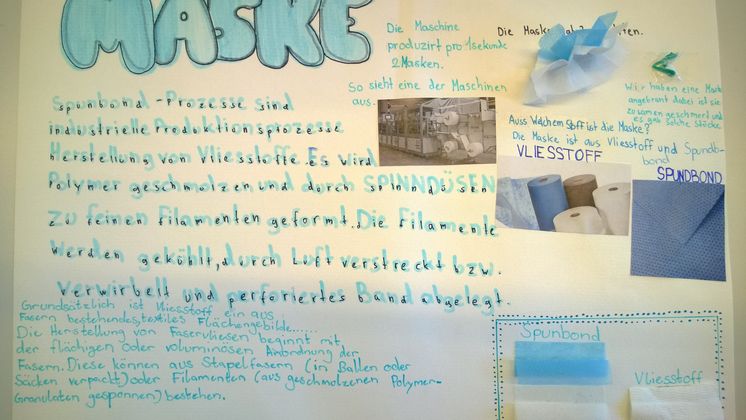 MASKE
Spunbond-Prozesse sind
industrielle Produktionsprozesse
Herstellung von Vliesstoffe. Es wird
Polymer geschmolzen und durch SPINNDÜSEN
zu feinen Filamenten geformt. Die Filamente
werden gekühlt, durch Luft verstreckt bzw.
verwirbelt und perforiertes band abgelegt.
Grundsätzlich ist Vliesstoff ein aus
Fasern bestehendes, textiles Flächengebilde......
Die Herstellung von Faservliesen beginnt mit
der flächigen oder voluminösen Anordnung der
Fasern. Diese können aus Stapelfasern (in Ballen oder
Säcken verpackt) oder Filamenten (aus geschmolzenen Polymer-
Granulaten gesponnen) bestehen.
Die Maschine
produzirt pro 1 sekunde
2 Masken.
So sieht eine der Maschinen
aus.
Die Maske hat
Wir haben eine
angebrant dabei ist sie
zusamen geschmort und
es gab solche Stücke
Auss Welchem Stoff ist die Maske?
Die Maske ist aus Vliesstoff und Spundb-
bond
VLIESSTOFF
SPUNDBOND
Spunbond
Vliesstoff